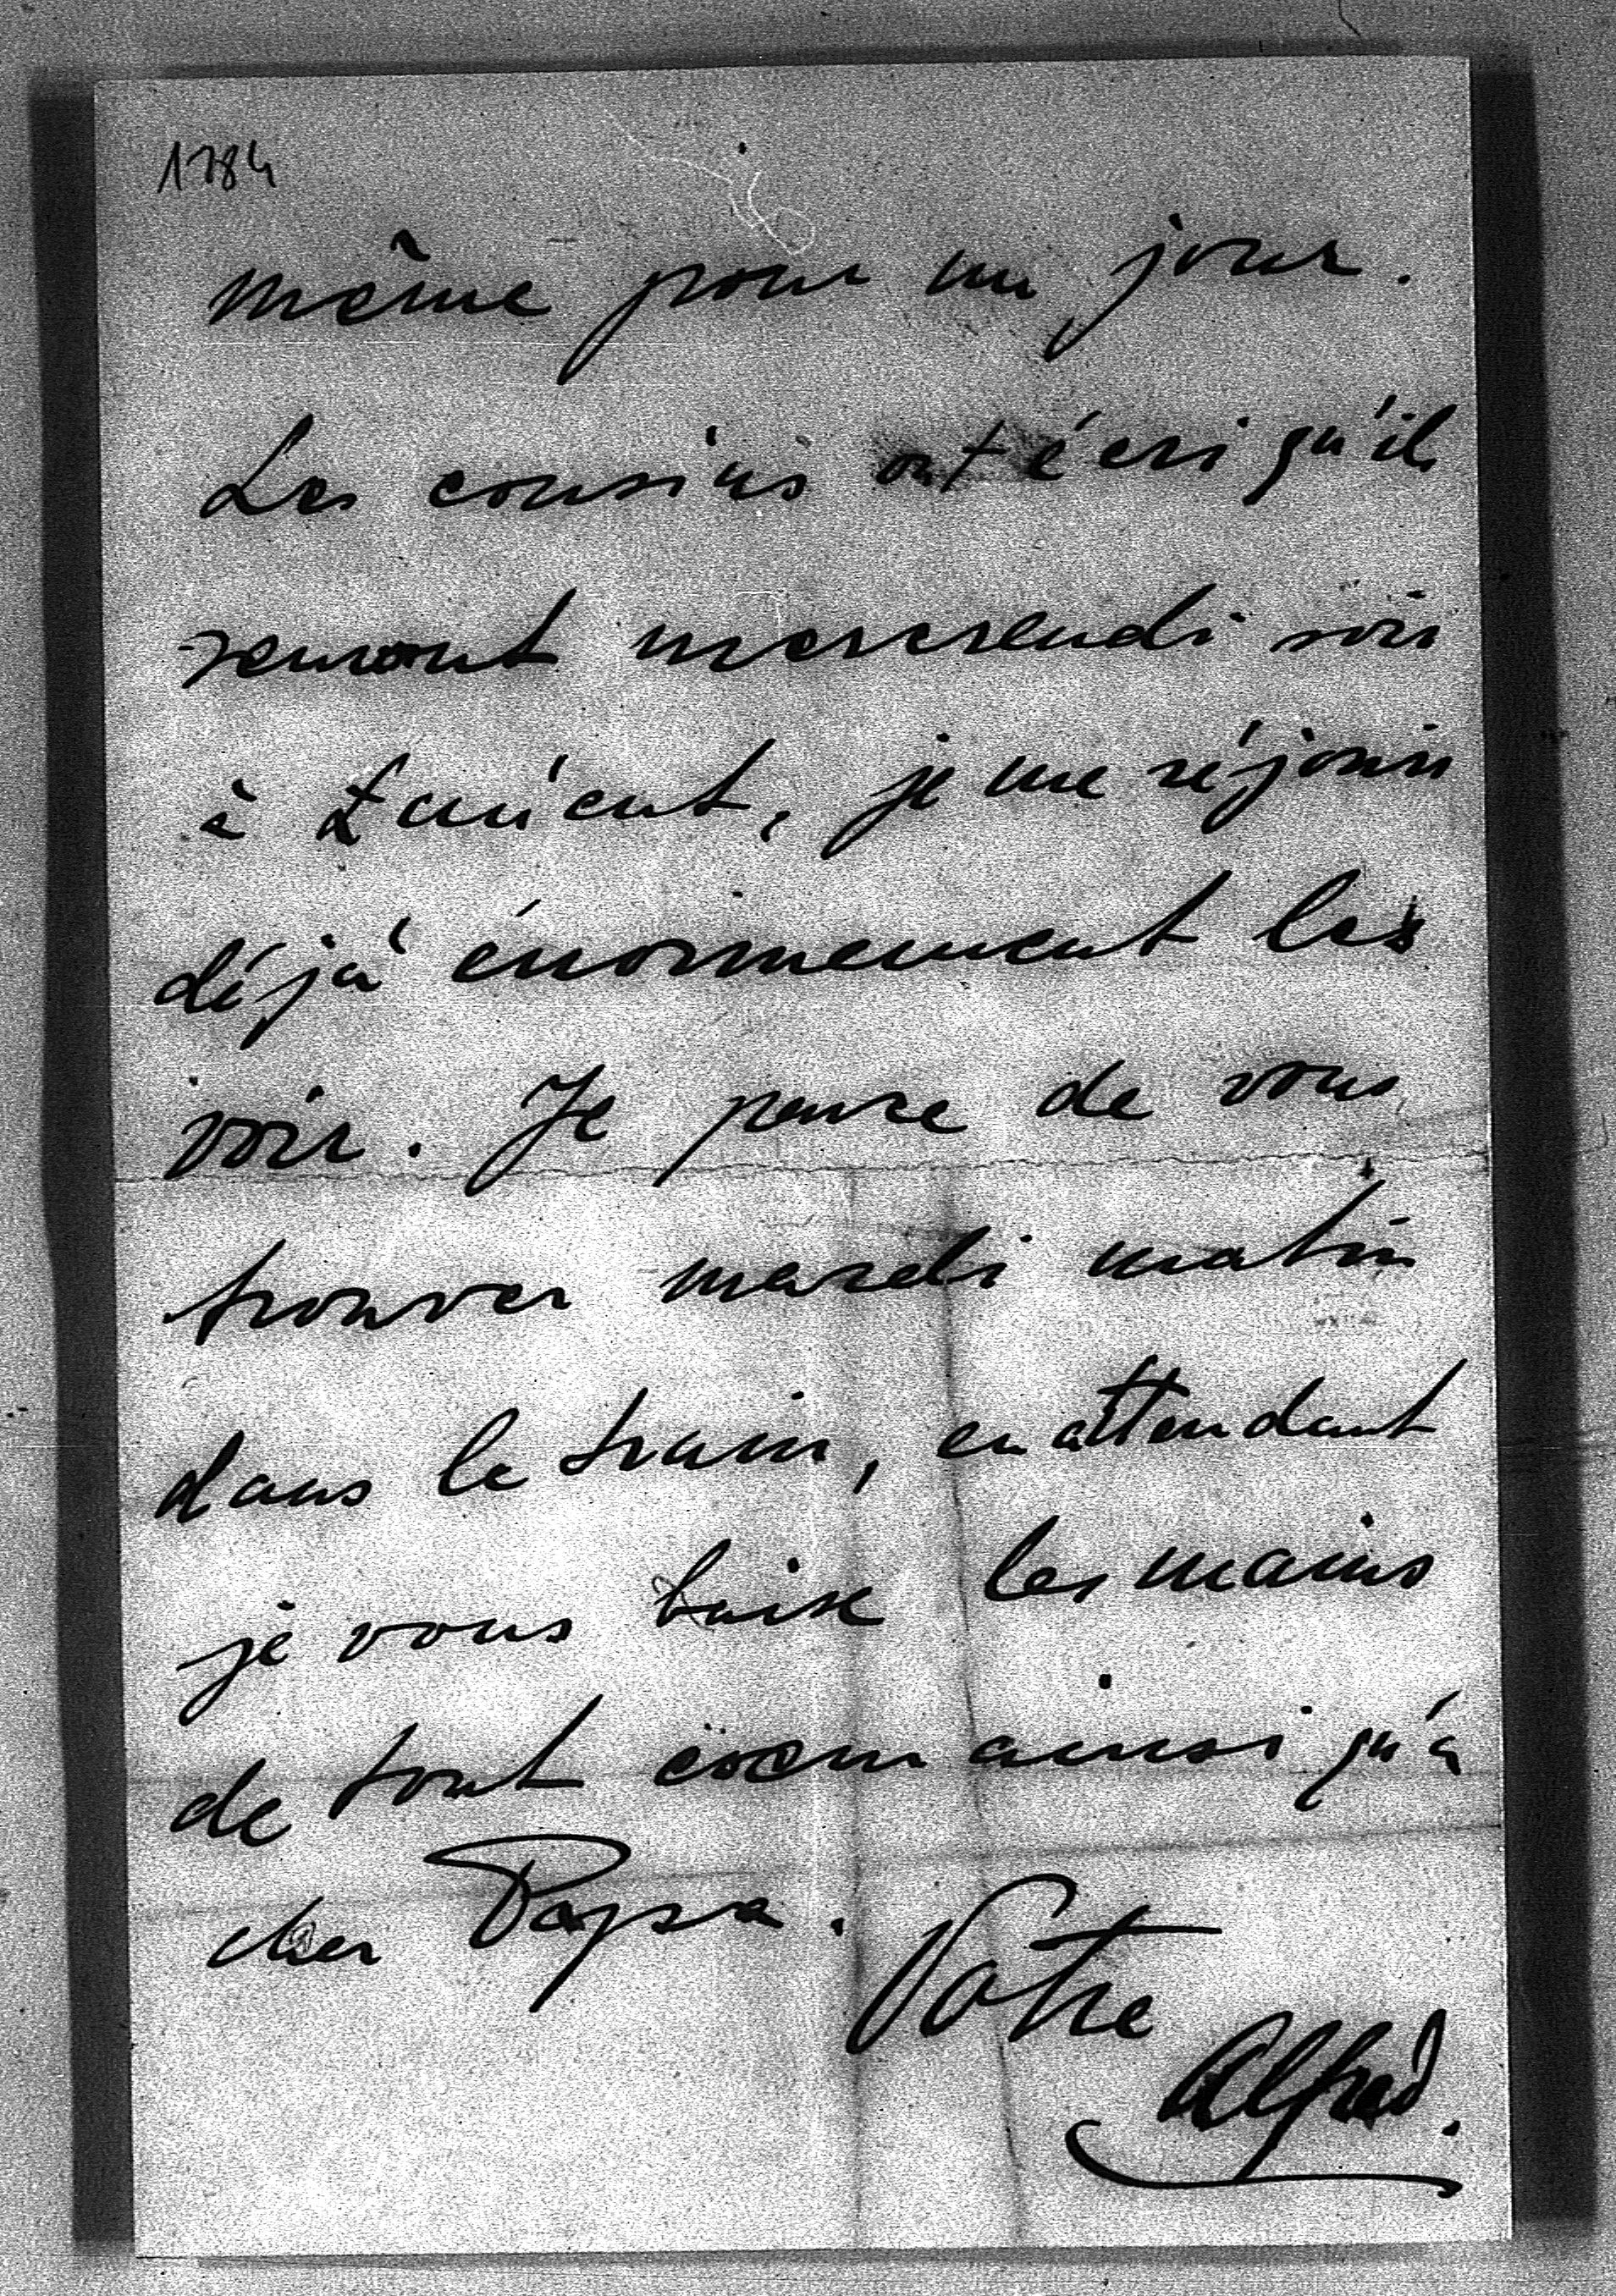 1784
même pour un jour.
Les cousins ont écri qu'ils
seront mercrendi soir
à Lancut, je me réjouis
déjà énormement les
voir. Je pense de vous
trouver mardi matin
dans le train, en attendant
je vous baise les mains
de tout coeur ainsi qu'à
cher Papa.
Votre
Alfred.